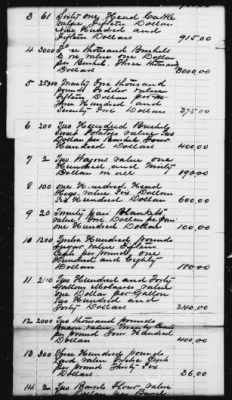 3 61 Sixty one Head Cattle
value Fifteen Dollars
Nine Hundred and
Fifteen Dollars 915.00
4 3000 Three thousand Bushels
Corn value one Dollar
per Bushel. Three thousand
Dollars 3000.00
5 25000 Twenty Five thousand
pounds Fodder value
Fifteen Dollars per
Three Hundred and
Seventy Five Dollars 375.00
6 200 Two Hundred Bushels
Sweet Potatoes value Two
Dollars per Bushel Four
Hundred Dollars 400.00
7 2 Two Wagons value one
Hundred and Ninety
Dollars in all 190.00
8 100 one Hundred Head
Hogs value Six Dollars
Six Hundred Dollars 600.00
9 20 Twenty pair Blankets
value Five Dollars per pair
one Hundred Dollars 100.00
10 1200 Twelve Hundred pounds
Sugar value Fifteen
Cents per pound, one
Hundred and Eighty
Dollars 180.00
11 240 Two Hundred and Forty
Gallons Molasses value
one Dollar per Gallon
Two Hundred and
Forty Dollars 240.00
12 2000 Two thousand pounds
Bacon value Twenty Cents
per pound Four Hundred
Dollars 400.00
13 300 Three Hundred pounds
Lard value Twelve Cents
per pound Thirty Six
Dollars 36.00
14 2 Two Barrels Flour value
Dollars per Barrel